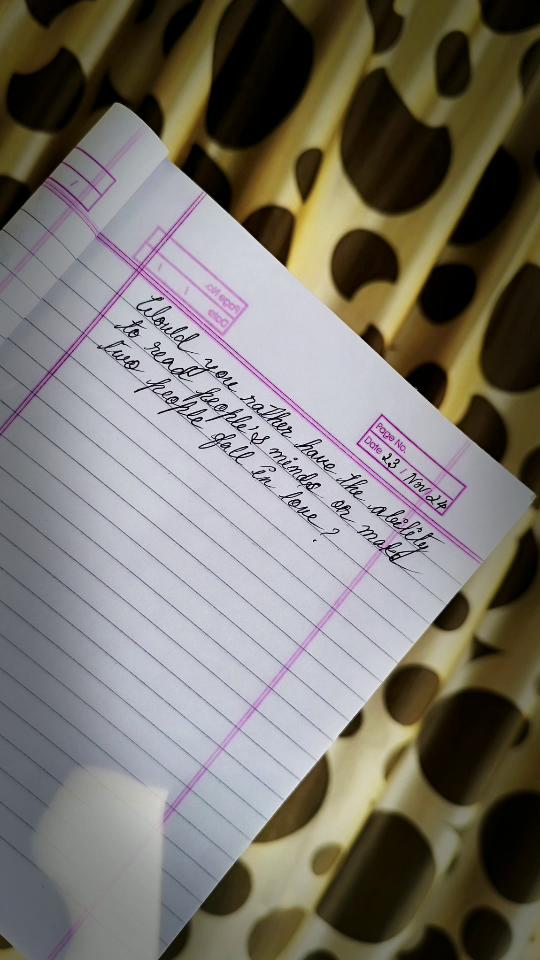 Page No.
Date
Page No.
Date 23 / Nov / 24
Would you rather have the ability
to read people's minds or make
two people fall in love?